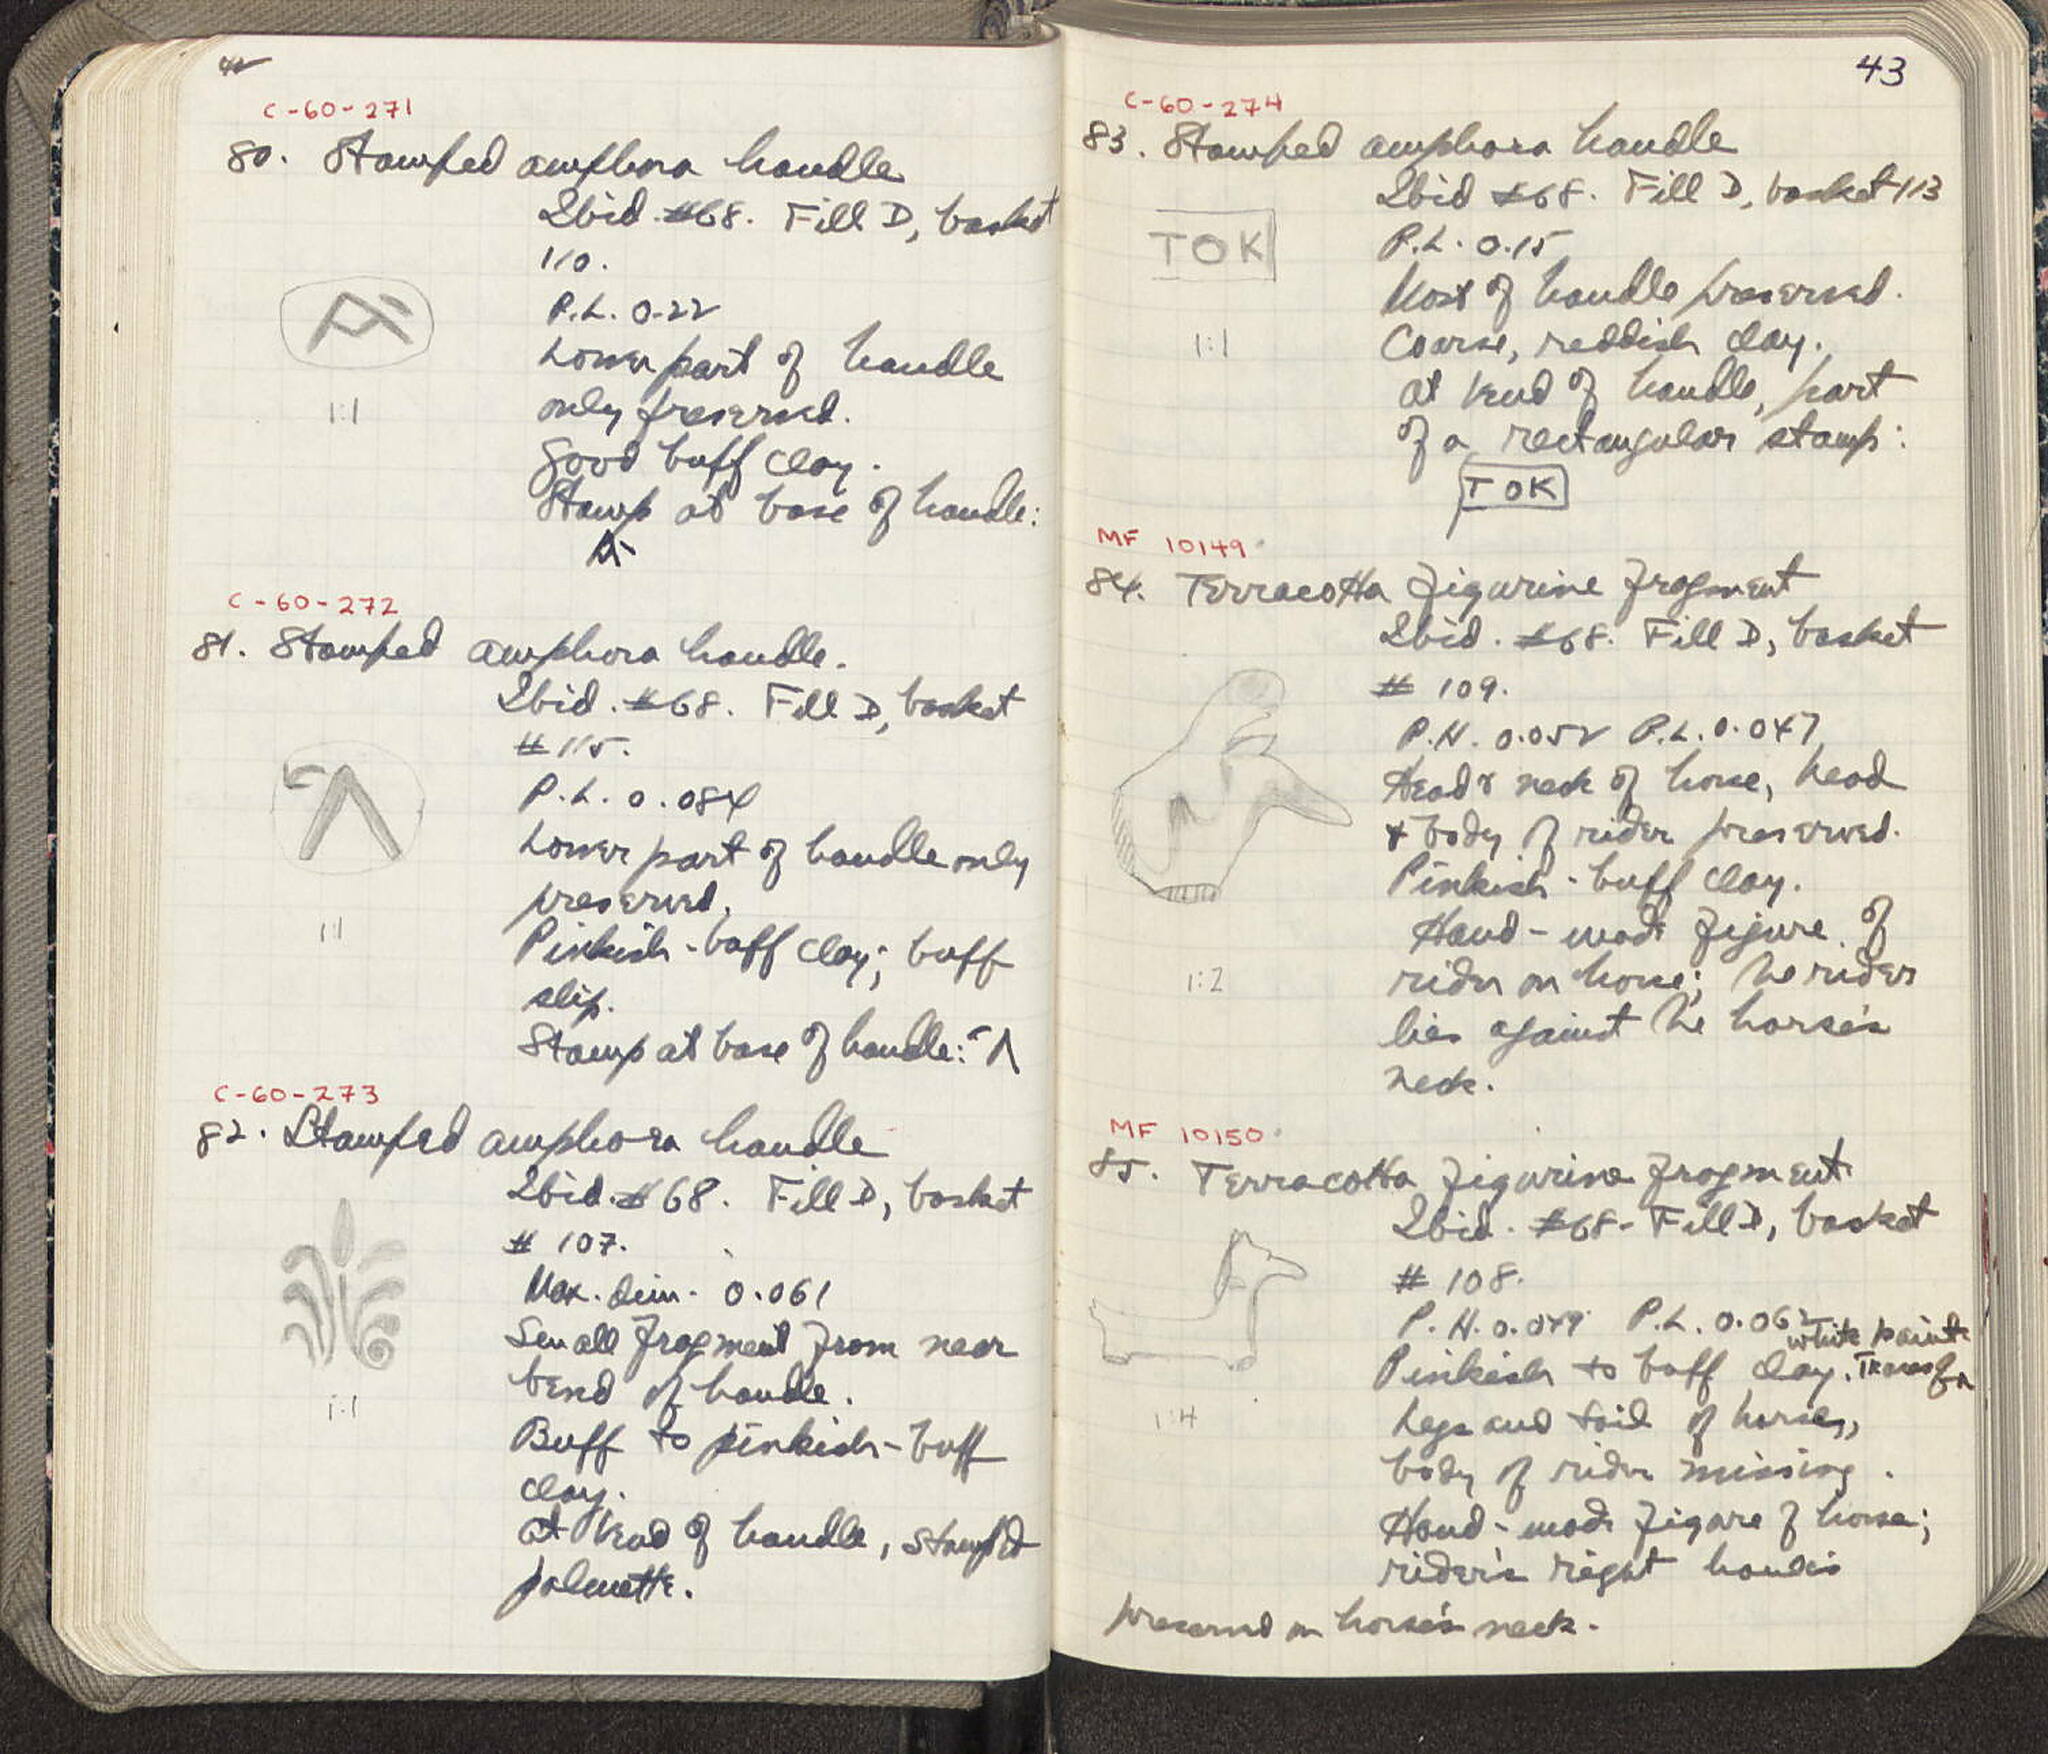 42
C-60-271
80. Stamped amphora handle
Ibid. #68. Fill D, basket
110.
P.L. 0.22
Lower part of handle
only preserved.
1:1
Good buff clay.
Stamp at base of handle:
C-60-272
81. Stamped amphora handle.
Ibid. #68. Fill D, basket
# 115.
P.L. 0.084
Lower part of handle only
preserved.
1:1
Pinkish-buff clay; buff
slip.
Stamp at base of handle:
C-60-273
82. Stamped amphora handle
Ibid. #68. Fill D, basket
# 107.
Max. dim. 0.061
Small fragment from near
bend of handle.
1:1
Buff to pinkish-buff
clay.
At bend of handle, stamped
palmette.
43
C-60-274
83. Stamped amphora handle
Ibid #68. Fill D, basket 113
TOK
P.L. 0.15
Most of handle preserved.
1:1
Coarse, reddish clay.
At bend of handle, part
of a rectangular stamp:
TOK
MF 10149
84. Terracotta figurine fragment
Ibid. #68. Fill D, basket
# 109.
P.H. 0.052 P.L. 0.047
Head & neck of horse, head
& body of rider preserved.
Pinkish-buff clay.
Hand-made figure of
1:2
rider on horse; the rider
lies against the horse's
neck.
MF 10150
85. Terracotta figurine fragment
Ibid. #68- Fill D, basket
# 108.
P.H. 0.049 P.L. 0.062
white paint
Pinkish to buff clay. Traces of
1:4
Legs and tail of horse,
body of rider missing.
Hand-made figure of horse;
rider's right hand is
preserved on horse's neck.